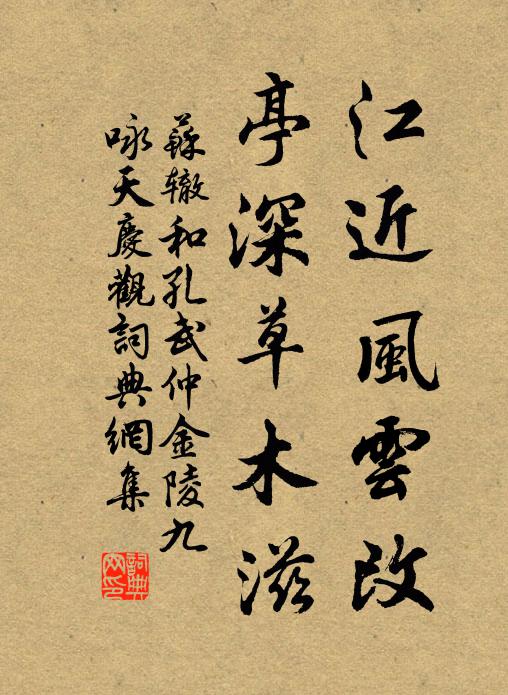 江近風雲改
亭深草木滋
蘇辙和孔武仲金陵九
咏天慶觀詞典網集
詞典网印